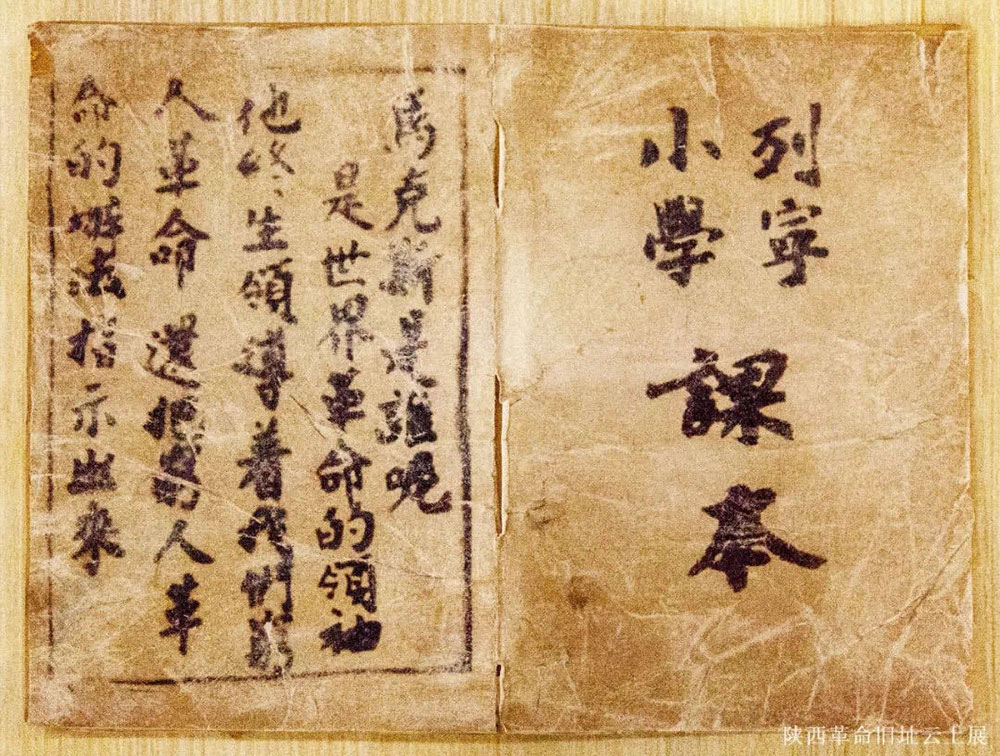 列寧
小學
課本
馬克斯是誰呢
是世界革命的領袖
他終生領導着我們窮
人革命 還把窮人革
命的辦法指示出來
陕西革命旧址云上展